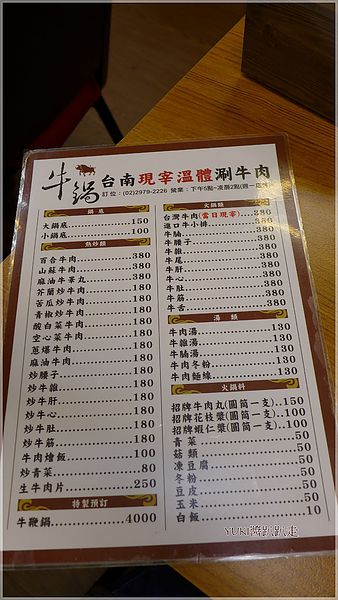 牛鍋
台南現宰溫體涮牛肉
訂位：(02)2979-2226 營業：下午5點~凌晨2點
鍋底
大鍋底 150
小鍋底 100
熱炒類
百合牛肉 380
山蘇牛肉 380
麻油牛睪丸 380
芥蘭炒牛肉 180
苦瓜炒牛肉 180
青椒炒牛肉 180
酸白菜牛肉 180
空心菜牛肉 180
蔥爆牛肉 180
麻油牛肉 180
炒腰子 180
炒牛雜 180
炒牛肝 180
炒牛心 180
炒牛肚 180
炒牛筋 180
牛肉燴飯 100
炒青菜 80
生牛肉片 250
特製預訂
牛鞭鍋 4000
火鍋類
台灣牛肉(當日現宰) 380
進口牛小排 380
牛腩 380
牛腰子 380
牛雜 380
牛尾 380
牛肝 380
牛心 380
牛肚 380
牛筋 380
牛舌 380
湯類
牛肉湯 130
牛雜湯 130
牛腩湯 130
牛肉冬粉 130
牛肉麵線 130
火鍋料
招牌牛肉丸(圓筒一支) 150
招牌花枝漿(圓筒一支) 100
招牌蝦仁漿(圓筒一支) 100
青菜 50
菇類 50
凍豆腐 50
冬粉 50
豆皮 50
玉米 50
白飯 10
YUKI醬趴趴走